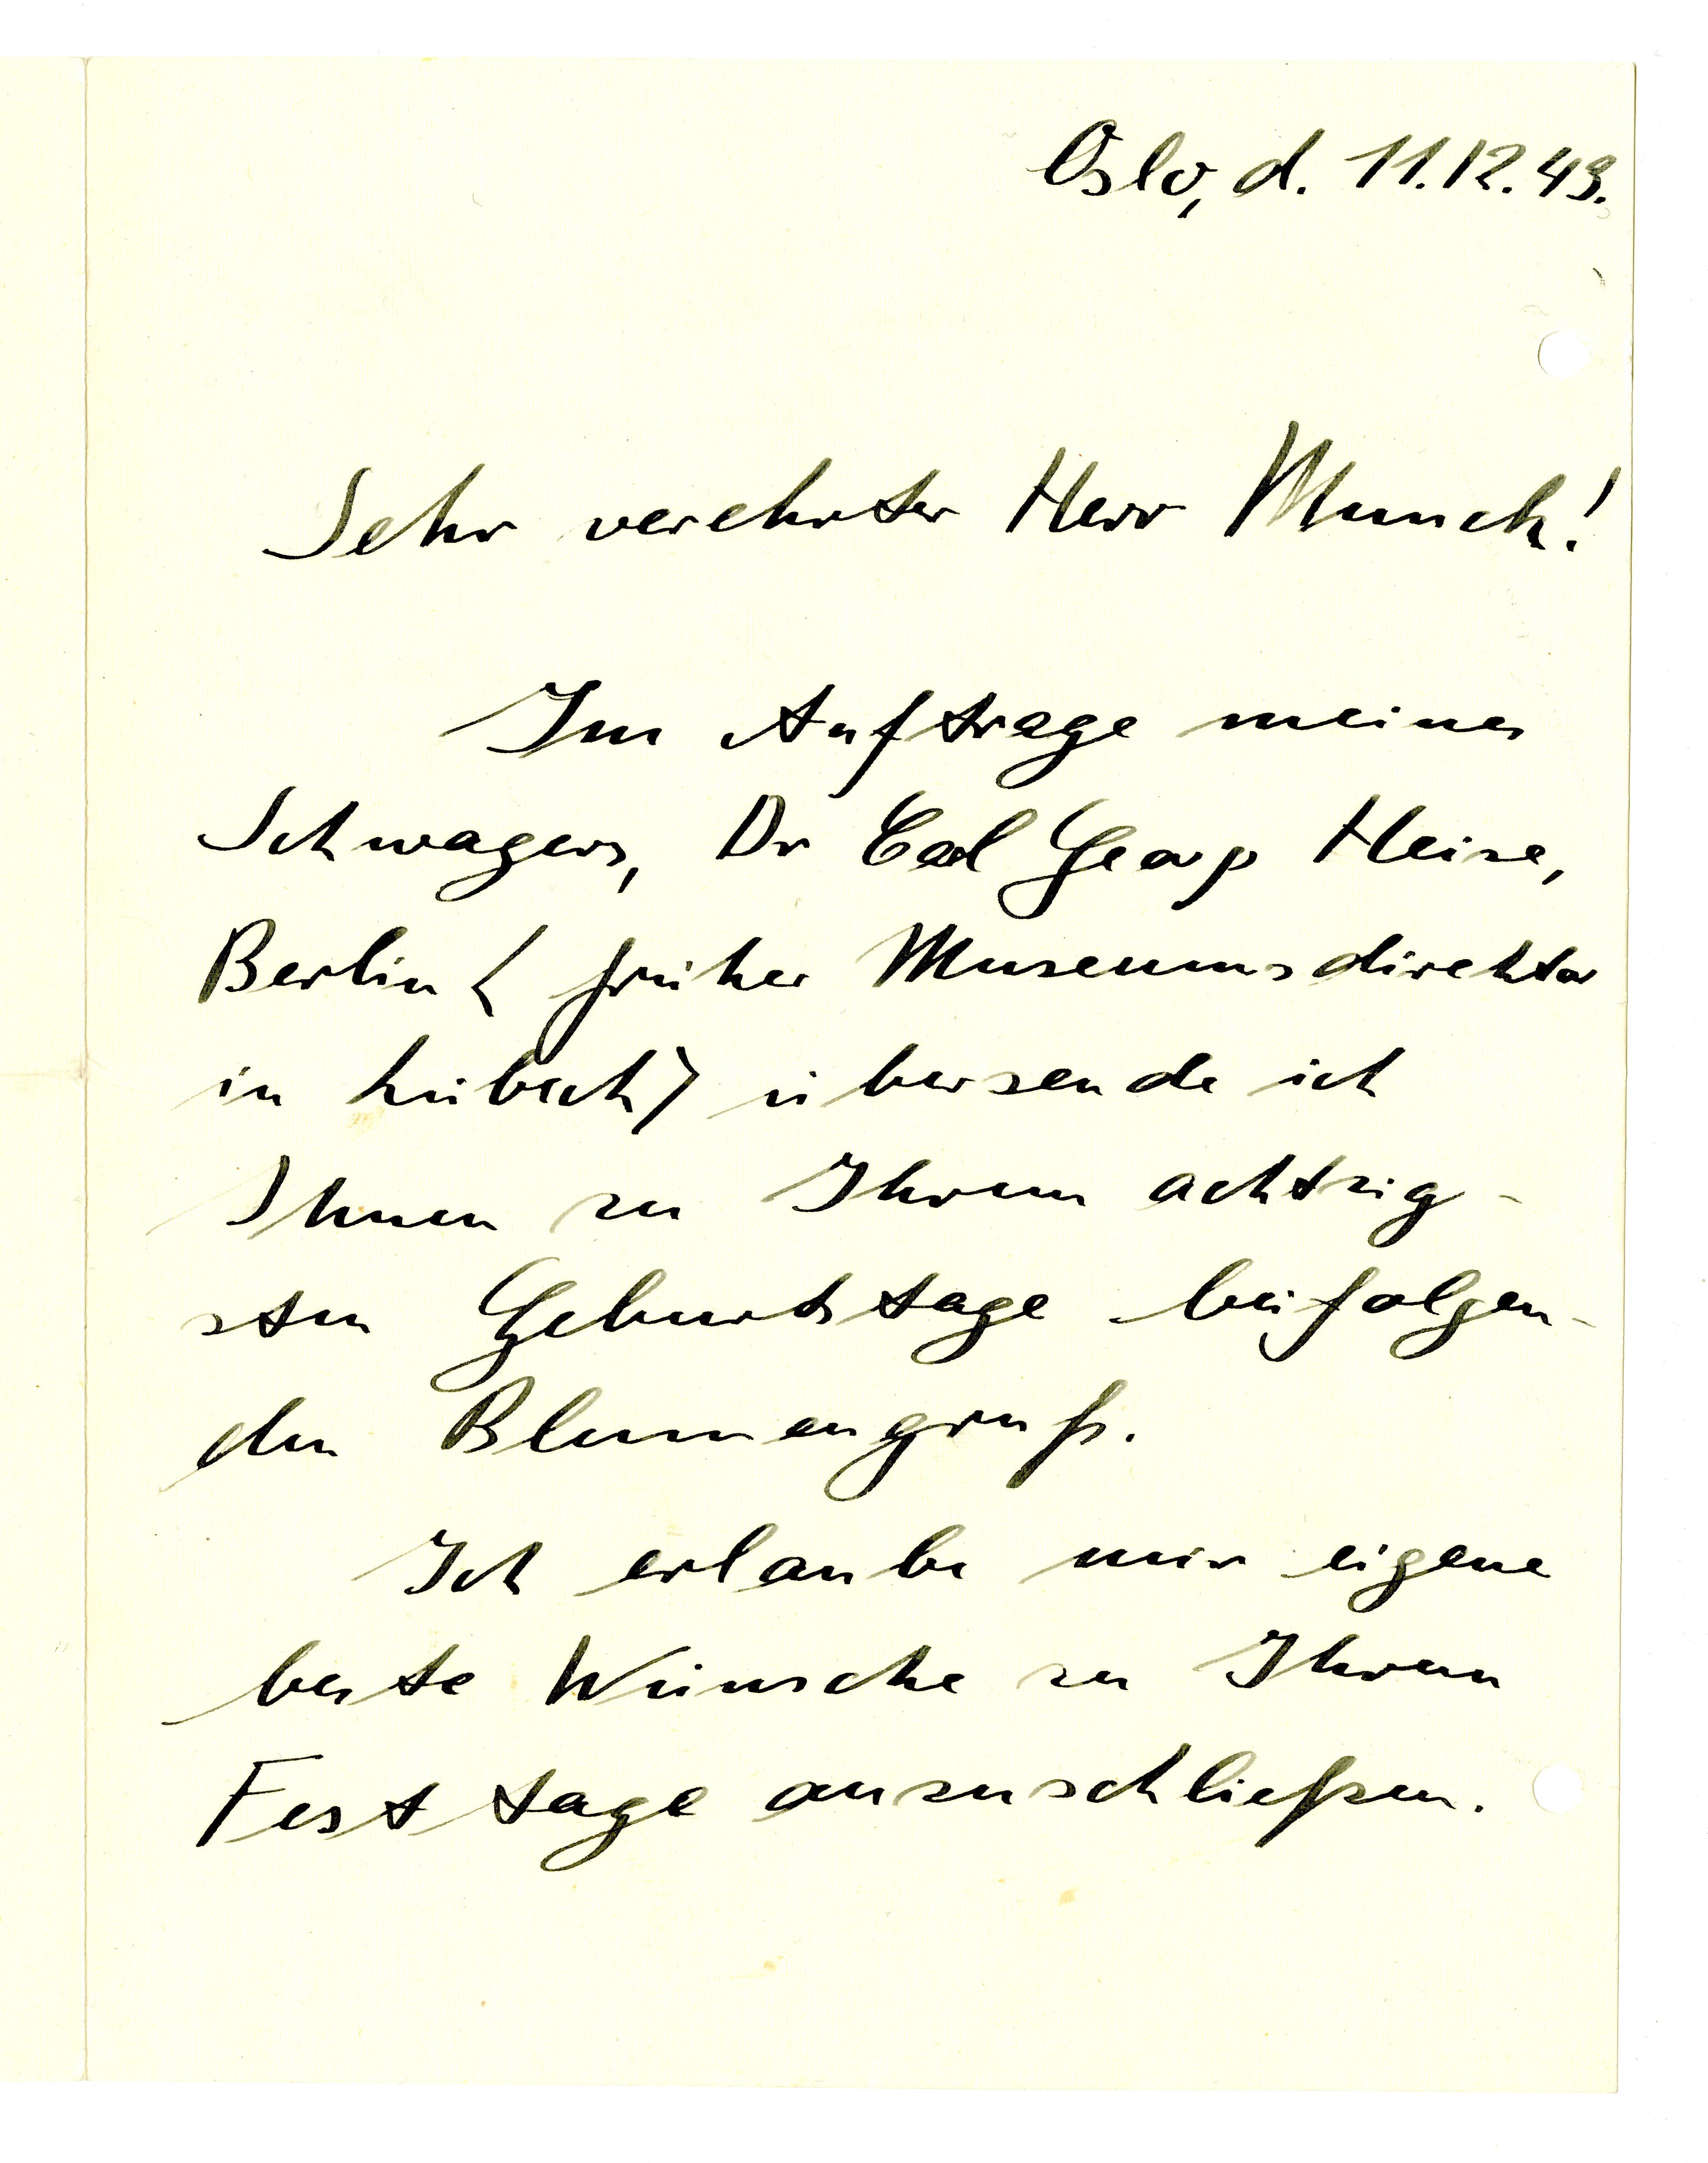 Oslo, d. 11.12.43.
Sehr verehrter Herr Munch!
Im Auftrage meines
Schwagers, Dr Carl Georg Heise,
Berlin (früher Museumsdirektor
in Lübeck) übersende ich
Ihnen zu Ihrem achtzig-
sten Geburtstage beifolgen-
den Blumengruß.
Ich erlaube mir eigene
beste Wünsche zu Ihrem
Festtage anzuschließen.